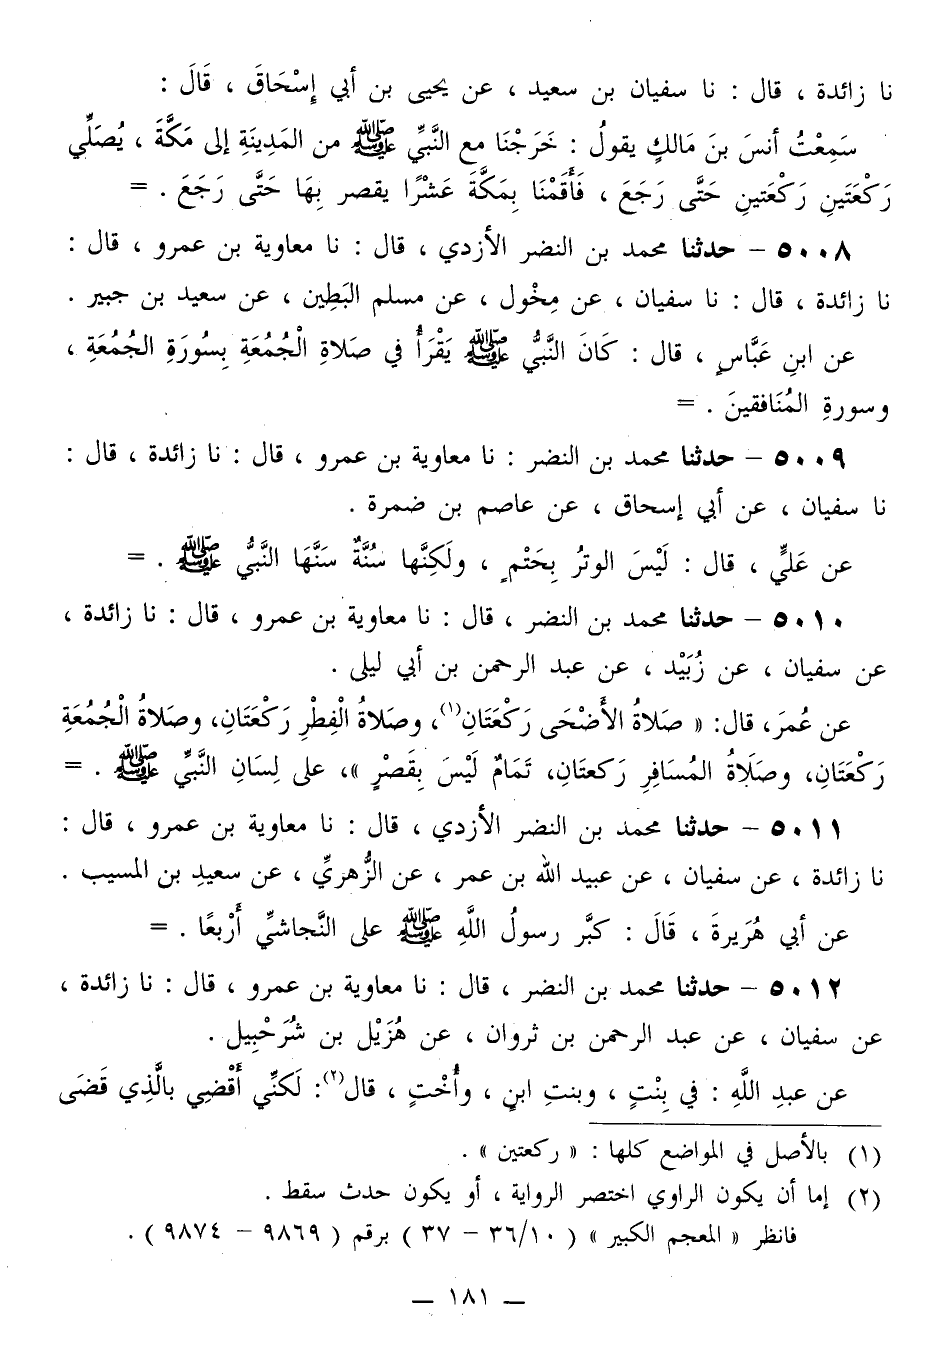 نا زائدة ، قال : نا سفيان بن سعيد ، عن يحيى بن أبي إِسْحَاقَ ، قَالَ :
سَمِعْتُ أنسَ بنَ مَالكٍ يقولُ : خَرَجْنَا مع النَّبيِّ ﷺ من المَدِينَةِ إلى مَكَّةَ ، يُصَلِّي
رَكْعَتَينِ رَكْعَتينِ حَتَّى رَجَعَ ، فَأَقَمْنَا بِمَكَّةَ عَشْرًا يقصر بِهَا حَتَّى رَجَعَ . =
٥٠٠٨ – حدثنا محمد بن النضر الأزدي ، قال : نا معاوية بن عمرو ، قال :
نا زائدة ، قال : نا سفيان ، عن مِخْول ، عن مسلم البَطِين ، عن سعيد بن جبير .
عن ابنِ عَبَّاسٍ ، قال : كَانَ النَّبيُّ ﷺ يَقْرَأُ في صَلاةِ الْجُمُعَةِ بِسُورَةِ الجُمُعَةِ ،
وسورةِ المُنَافقينَ . =
٥٠٠٩ – حدثنا محمد بن النضر : نا معاوية بن عمرو ، قال : نا زائدة ، قال :
نا سفيان ، عن أبي إسحاق ، عن عاصم بن ضمرة .
عن عَليٍّ ، قال : لَيْسَ الوترُ بِحَتْمٍ ، ولَكِنَّها سُنَّةٌ سَنَّهَا النَّبيُّ ﷺ . =
٥٠١٠ – حدثنا محمد بن النضر ، قال : نا معاوية بن عمرو ، قال : نا زائدة ،
عن سفيان ، عن زُبَيْد ، عن عبد الرحمن بن أبي ليلى .
عن عُمرَ، قال: « صَلاةُ الأَضْحَى رَكْعَتَانِ(١)، وصَلاةُ الْفِطْرِ رَكْعَتَانِ، وصَلاةُ الْجُمُعَةِ
رَكْعَتَانِ، وصَلَاةُ المُسَافرِ رَكعتَانِ، تَمَامٌ لَيْسَ بِقَصْرٍ »، على لِسَانِ النَّبيِّ ﷺ . =
٥٠١١ – حدثنا محمد بن النضر الأزدي ، قال : نا معاوية بن عمرو ، قال :
نا زائدة ، عن سفيان ، عن عبيد الله بن عمر ، عن الزُّهريِّ ، عن سعيدِ بن المسيب .
عن أبي هُرَيرةَ ، قَالَ : كبَّر رسولُ اللَّهِ ﷺ على النَّجاشيِّ أَرْبعًا . =
٥٠١٢ – حدثنا محمد بن النضر ، قال : نا معاوية بن عمرو ، قال : نا زائدة ،
عن سفيان ، عن عبد الرحمن بن ثروان ، عن هُزَيْل بن شُرَحْبِيل .
عن عبدِ اللَّهِ : في بِنْتٍ ، وبنتِ ابنٍ ، وأُخْتٍ ، قال(٢): لَكنِّي أَقْضِي بالَّذِي قَضَى
(١) بالأصل في المواضع كلها : « ركعتين » .
(٢) إما أن يكون الراوي اختصر الرواية ، أو يكون حدث سقط .
فانظر « المعجم الكبير » ( ١٠/٣٦ – ٣٧ ) برقم ( ٩٨٦٩ – ٩٨٧٤ ) .
— ١٨١ —